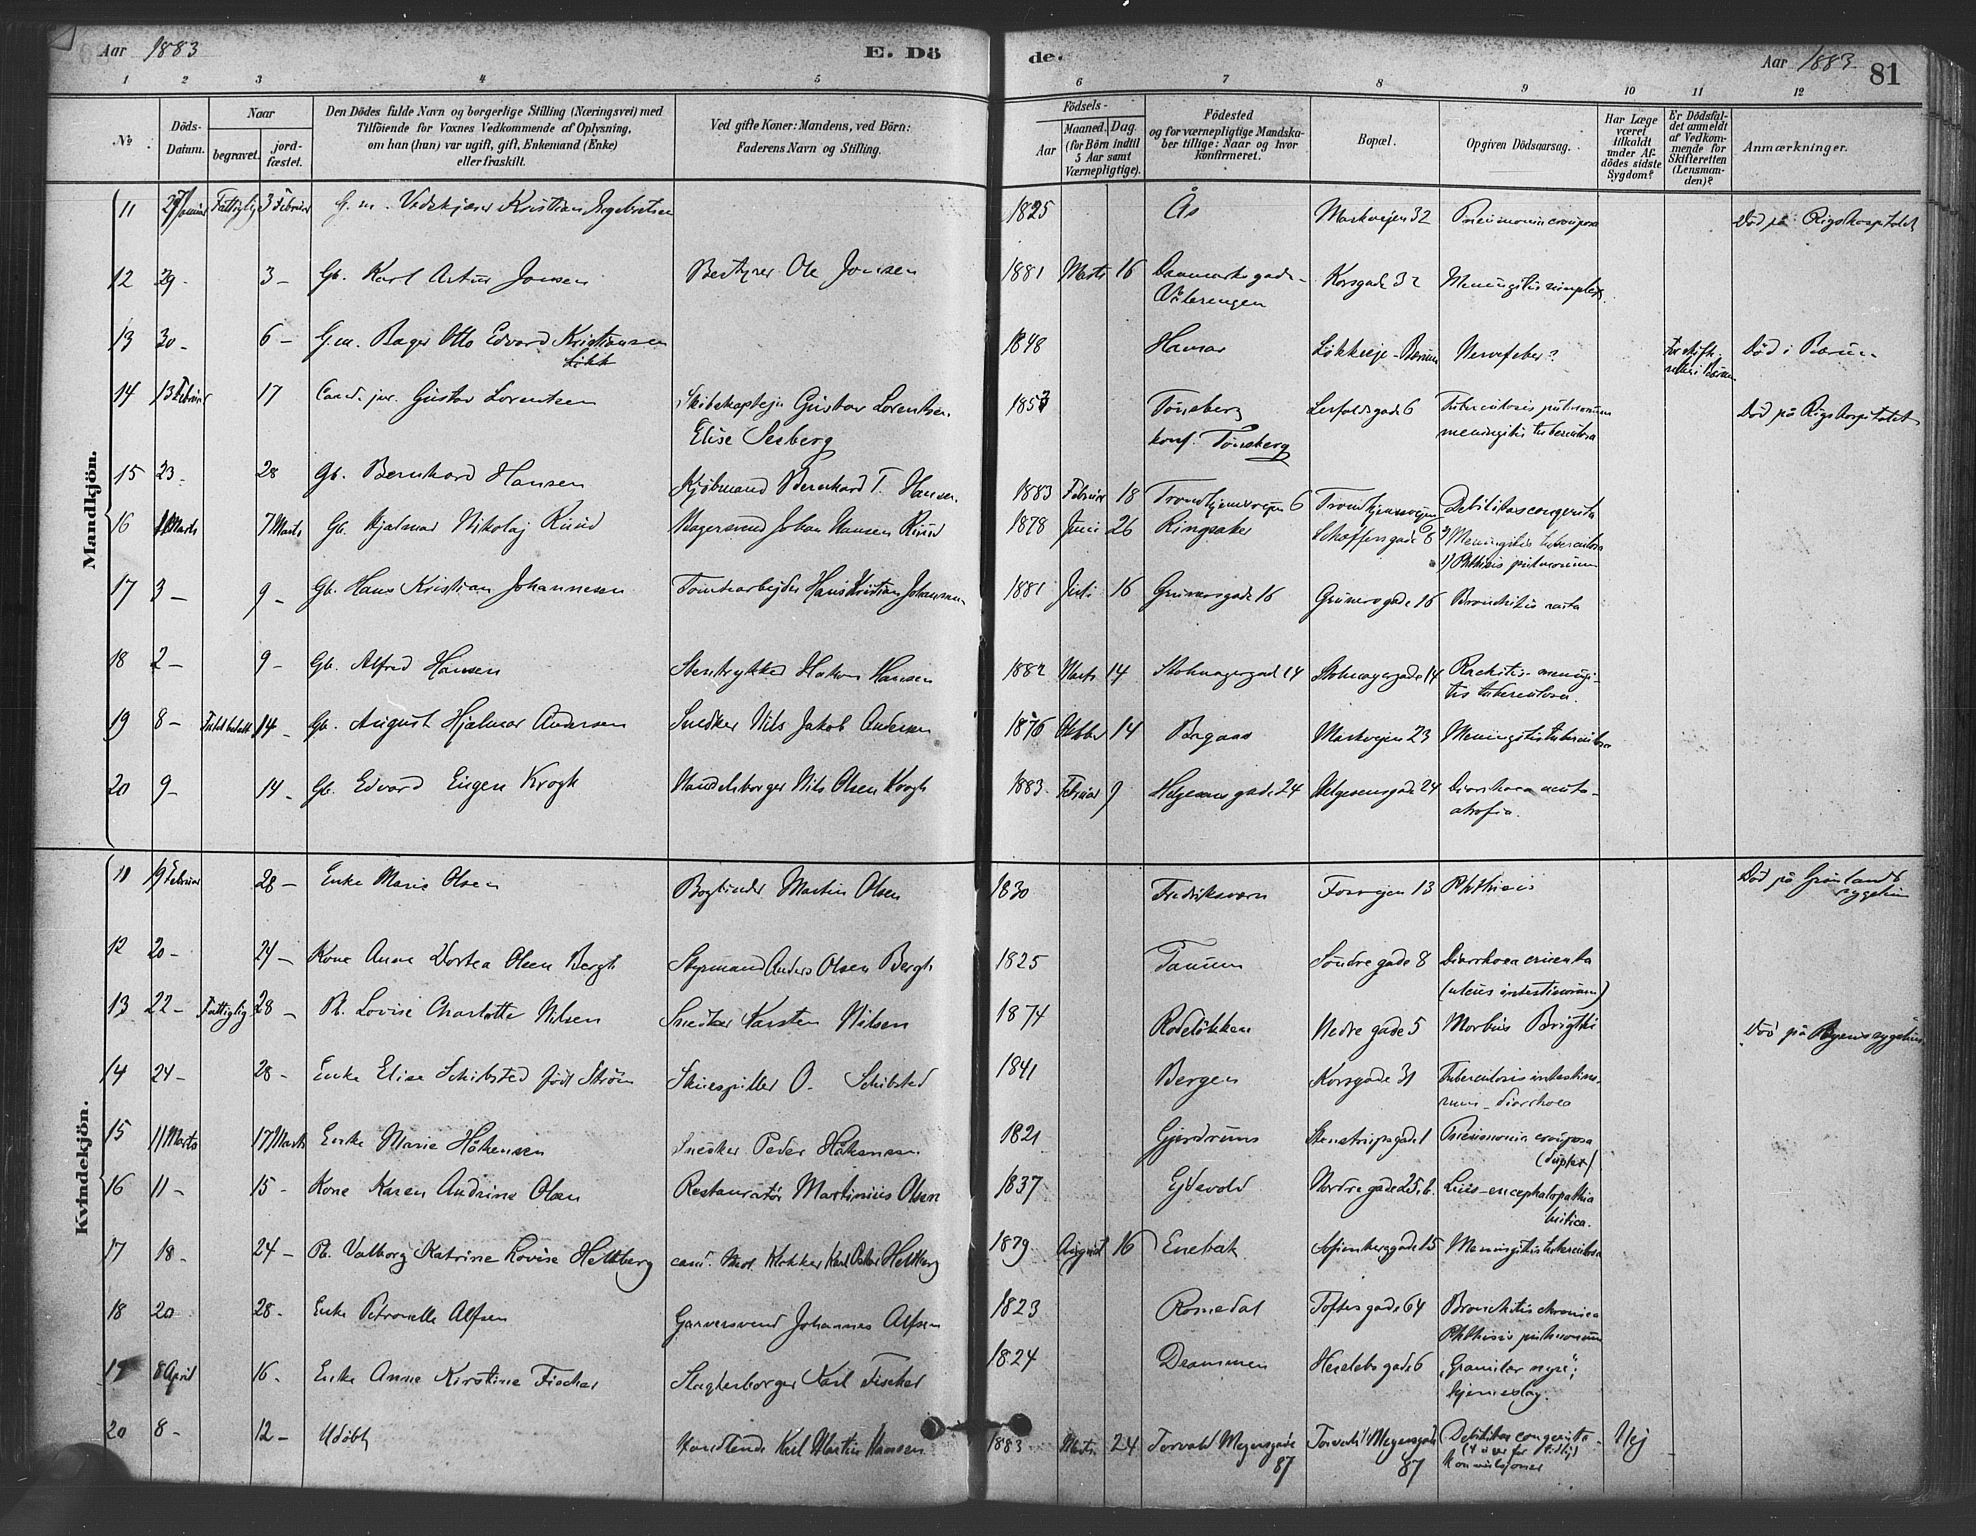 Aar 1883
E. Dö
de.
Aar 1883
81
1 2 3 4 5 6 7 8 9 10 11 12
No
Döds-Datum.
Naar
begravet.
jord-fæstet.
Den Dödes fulde Navn og borgerlige Stilling (Næringsvei) med
Tilföiende for Voxnes Vedkommende af Oplysning,
om han (hun) var ugift, gift, Enkemand (Enke)
eller fraskilt.
Ved gifte Koner: Mandens, ved Börn:
Faderens Navn og Stilling.
Födsels-
Aar
Maaned. Dag.
(for Börn indtil
5 Aar samt
Værnepligtige).
Födested
og for værnepligtige Mandska-
ber tillige: Naar og hvor
konfirmeret.
Bopæl.
Opgiven Dödsaarsag.
Har Læge
været
tilkaldt
under Af-
dödes sidste
Sygdom?
Er Dödsfal-
det anmeldt
af Vedkom-
mende for
Skifteretten
(Lensman-
den)?
Anmærkninger.
Mandkjön.
11 Fattiglig 3 Februar G. m. Kristian Ingebretsen 1825 Ås Markvejen 32 Pneumonia crouposa Død på Rigshospitalet
12 29 - 3 - Gb. Karl Artur Jonsen Bestyrer Ole Jonsen 1881 Marts 16 Danmarksgade - Korsgade 32 Meningitis simplex
Vålerengen
13 30 - 6 - G.m. Bager Otto Edvard Kristiansen 1848 Hamar Løkkeje - Bærum Nervefeber? Død i Bærum
14 13 Februar 17 Cand. jur. Gustav Lorentsen Skibskaptejn Gustav Lorentsen 1853 Tønsberg 6 Tuberculosis pulmonum Død på Rigshospitalet
Elise Sesberg konf. Tønsberg meningitis tuberculosa
15 23 - 28 Gb. Bernhard Hansen Kjøbmand Bernhard T. Hansen 1883 Februar 18 Trondhjemsvejen 6 Trondhjemsvejen 6 Debilitas congenita
16 Marts 7 Marts Gb. Hjalmar Nikolaj Ruud Johan Hansen Ruud 1878 Juni 26 Ringsaker Schøffensgade 8 2) Meningitis tuberculosa
1) Phthisis pulmonum
17 3 - 9 - Gb. Hans Kristian Johannesen Tomtearbejder Hans Kristian Johannesen 1881 Juli 16 Grünersgade 16 Grünersgade 16 Bronchitis
18 2 - 9 - Gb. Alfred Hansen Stentrykker Håkon Hansen 1882 Marts 14 Stolmagergade 14 Stolmagergade 14 Rachitis - meningi-
tis tuberculosa.
19 8 - 14 - Gb. August Hjalmar Andersen Snedker Nils Jakob Andersen 1876 Oktober 14 Markvejen 23 Meningitis tuberculosa
20 9 - 14 - Gb. Edvard Eugen Krogh Handelsborger Nils Olsen Krogh 1883 Februar 9 Helgesensgade 24 Helgesensgade 24 Diarrhoea acuta -
atrofia.
Kvindekjön.
11 19 Februar 28 - Enke Marie Olsen Bogbinder Martin Olsen 1830 Fredriksværn Fossvejen 13 Phthisis Død på Grønlands
sygehus
12 20 - 24 - Kone Anne Dortea Olsen Bergh Styrmand Anders Olsen Bergh 1825 Tanum Søndre gade 8 Diarrhoea cruenta
(ulcus intestinorum)
13 22 - Fattiglig 28 - Pb. Lovise Charlotte Nilsen Snedker Karsten Nilsen 1874 Rodeløkken Nedre gade 5 Morbus Brightii Død på Byens sygehus
14 24 - 28 - Enke Elise Schibsted født Strøm Skuespiller O. Schibsted 1841 Bergen Korsgade 31 Tuberculosis intestino-
rum - diarrhoea
15 11 Marts 17 Marts Enke Marie Håkensen Snedker Peder Håkensen 1821 Gjerdrum Stenstrupsgade 1 Pneumonia crouposa
(duplex)
16 11 - 15 - Kone Karen Andrine Olsen Restauratør Martinius Olsen 1837 Ejdsvold Nordre gade 25, b. Lues - encephalopathia
luetica.
17 18 - 24 - Pb. Valborg Katrine Lovise Heltberg cand. theol. Klokker Karl Oskar Heltberg 1879 August 16 Enebak Sofienberggade 15 Meningitis tuberculosa
18 20 28 - Enke Petronelle Alfsen Garversvend Johannes Alfsen 1823 Romedal Toftesgade 64 Bronchitis chronica
Phthisis pulmonum
19 8 April 16 - Enke Anne Kirstine Fischer Slagterborger Karl Fischer 1824 Drammen Heselebsgade 6 "Granular nyre";
hjerneslag.
20 8 - 12 - Udøbt Handlende Karl Martin Hansen 1883 Marts 24 Torvald Meyersgade 87 Torvald Meyersgade 87 Debilitas congenita - Nej
(4 uker for tidlig)
Konvulsjoner